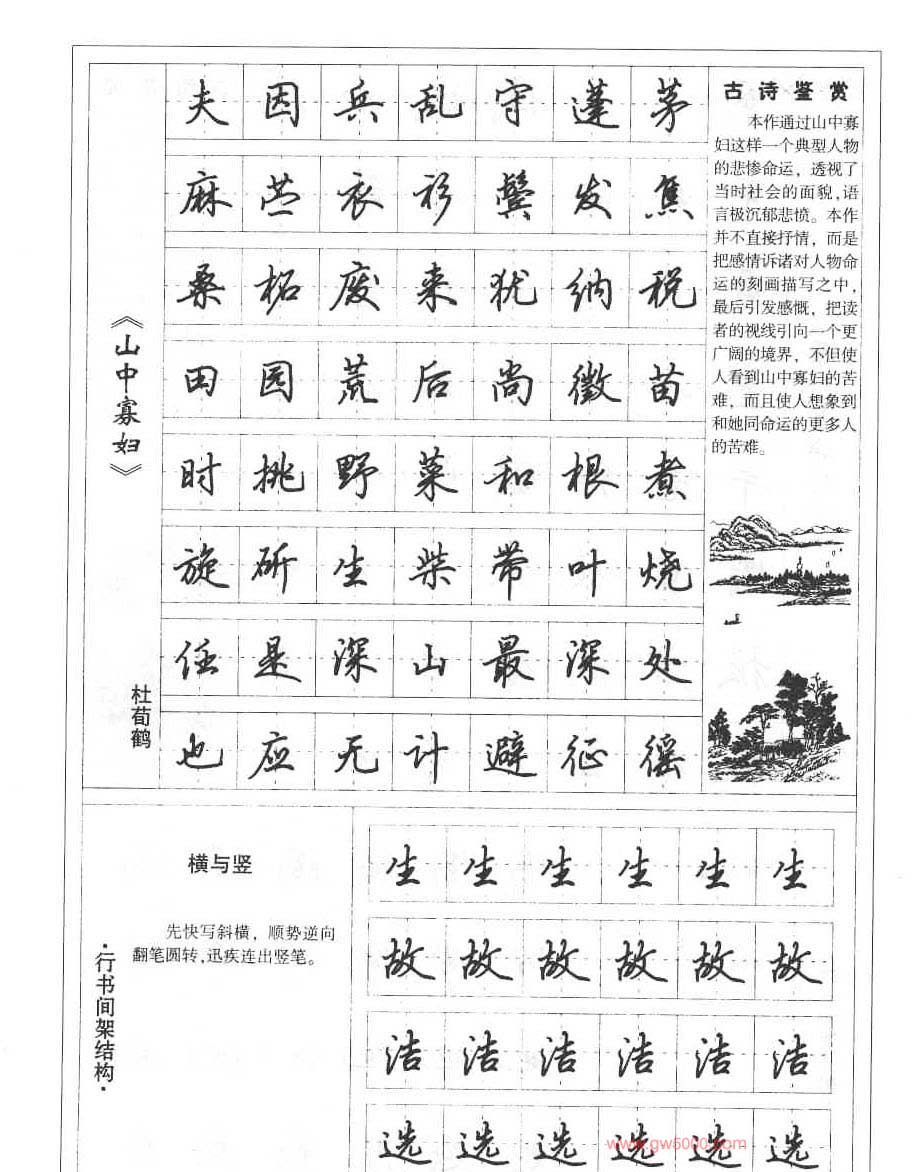 夫因兵乱守蓬茅
麻苎衣衫鬓发焦
桑柘废来犹纳税
田园荒后尚徵苗
时挑野菜和根煮
旋斫生柴带叶烧
任是深山最深处
也应无计避征徭
《山中寡妇》
杜荀鹤
古诗鉴赏
本作通过山中寡
妇这样一个典型人物
的悲惨命运，透视了
当时社会的面貌,语
言极沉郁悲愤。本作
并不直接抒情，而是
把感情诉诸对人物命
运的刻画描写之中，
最后引发感慨，把读
者的视线引向一个更
广阔的境界，不但使
人看到山中寡妇的苦
难，而且使人想象到
和她同命运的更多人
的苦难。
·行书间架结构·
横与竖
先快写斜横，顺势逆向
翻笔圆转,迅疾连出竖笔。
生生生生生生
故故故故故故
洁洁洁洁洁洁
选选选选选选
www.gw5000.com